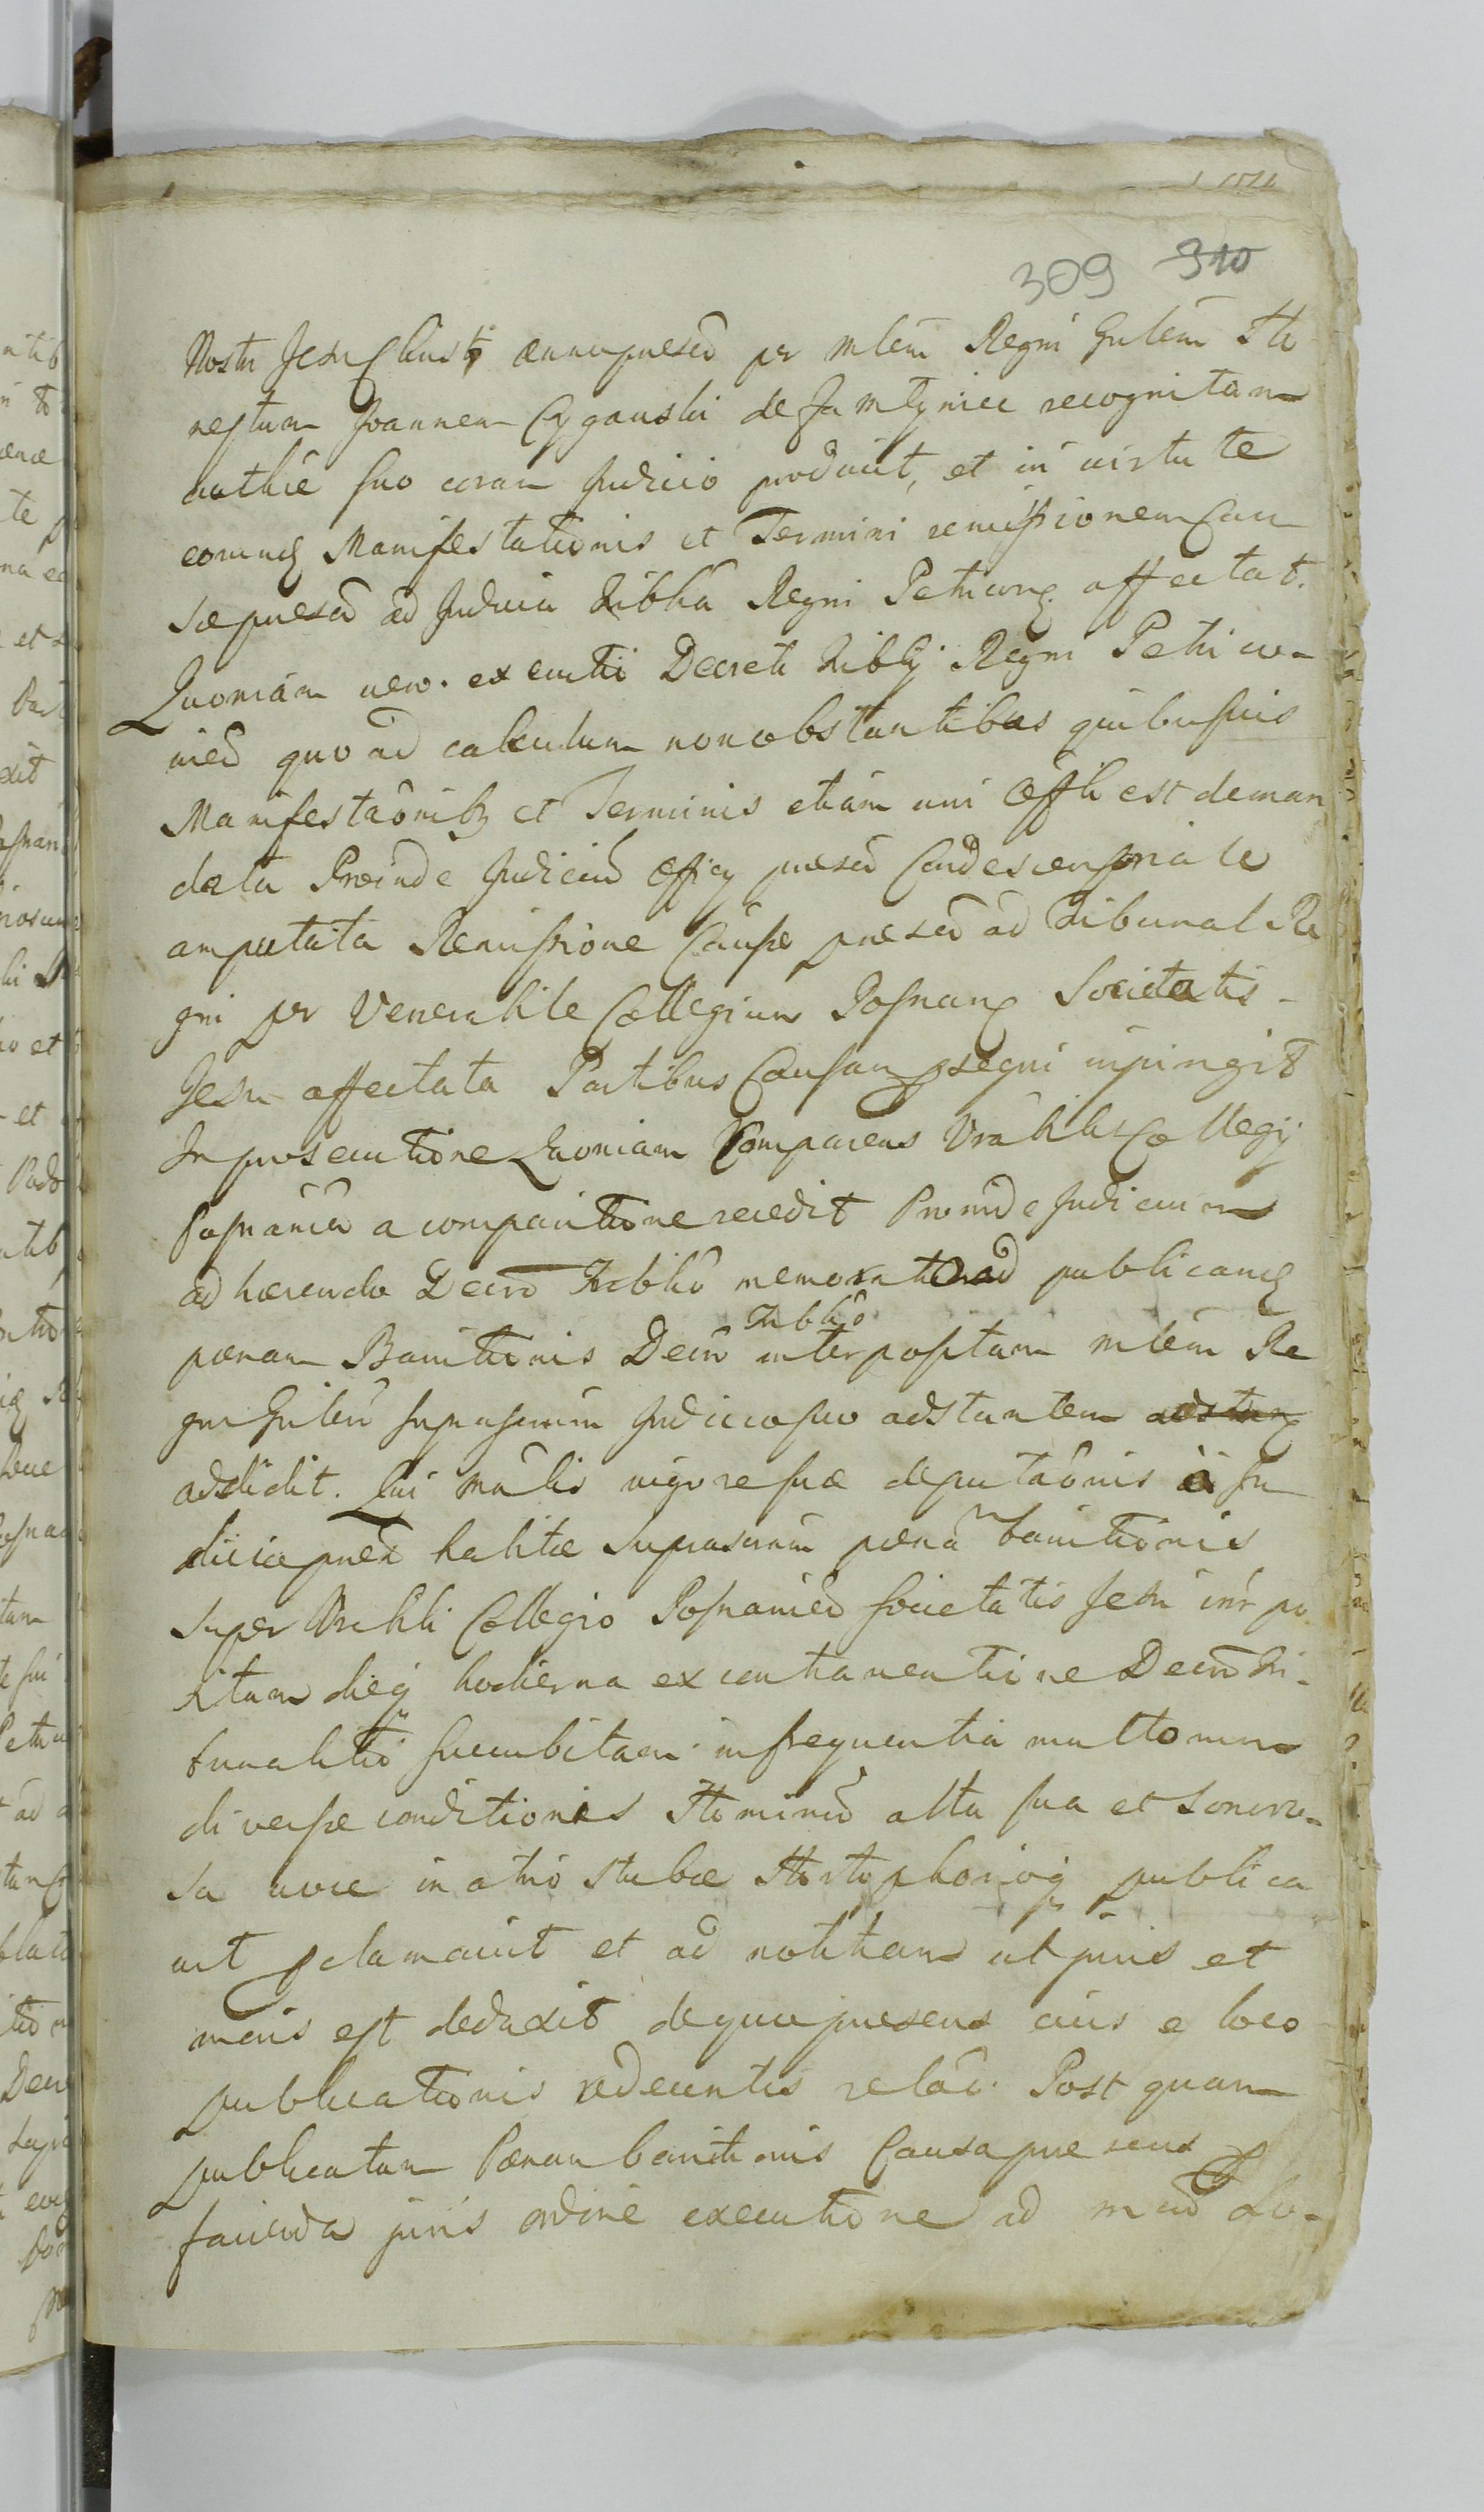 309 310
Nostri Jesu Christi aennepraesen per mlem Regni Gnlem Ho
nestum Joannem Cyganski de Jamlyniec recognitam
authce suo coram Judicio produxit, et in virtute
eorundq Manifestationis et Termini remissionem Cau
sae praesen ad Judicia Tribblia Regni Petricong affectat.
Quoniam vero ex cautti Decreti Tribblij Regni Petrico-
vien quo ad calculum non obstantibus quibusvis
Manifestaonibq et Terminis etiam uni Offli est deman
data Proinde Judicium Officij praesen Condescensoriale
amputata Remissione Causae praesen ad Tribunal Re
gni per Venerabile Collegium Posnang Societatis
Jesu affectata Partibus Causam psequi inpingit
In prosecutione Quoniam Comparens Vrabilis Collegij
Posnanien a comparitione recedit Proinde Judicium
ad haerendo Decro Trbbliô memorato ad publicandq
poenam Banitionis Decro Trbbliô interpositam mlem Re
gni Gnlem suprascrum Judicio suo adstantem adstang
addidit. Qui mnlis vigore suae deputaônis à Ju
dicio praen habitae suprascram poenam banitionis
super Vrabli Collegio Posnanien Societatis Jesu intrpo
sitam dieq hodierna ex contraventione Decro Tri-
bunalitio succubitam in frequentia multorum
diversae conditionis Hominum alta sua et sonoro-
sa voce in atrio stubae publica
vit pclamavit et ad notitiam ut juris et
moris est deduxit de quo praesens eius e loco
publicationis redeuntis relaô. Post quam
publicatam Poenam banitionis Causa praesens p
facienda juris ordine executione ad